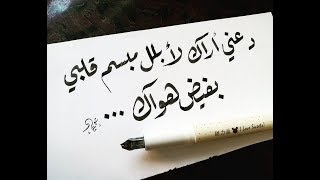 دعني أراك لأبلل مبسم قلبي
بفيض هواك ...